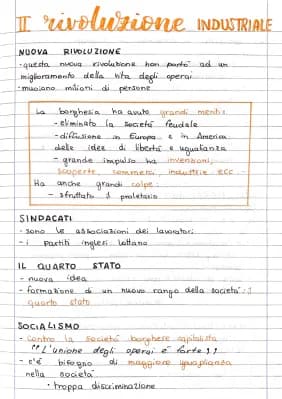 II rivoluzione INDUSTRIALE
NUOVA RIVOLUZIONE
- questa nuova rivoluzione non portò ad un
miglioramento della vita degli operai
- muoiono milioni di persone
La borghesia ha avuto grandi meriti:
- eliminato la società feudale
- diffusione in Europa e in America
delle idee di libertà e uguaglianza
- grande impulso ha invenzioni,
scoperte, commerci, industrie ecc.
Ha anche grandi colpe:
- sfruttato il proletario
SINDACATI
- sono le associazioni dei lavoratori
- i partiti inglesi lottano
IL QUARTO STATO
- nuova idea
- formazione di un nuovo rango della società:
quarto stato
SOCIALISMO
- contro la società borghese capitalista
"L'unione degli operai è forte"
- c'è bisogno di maggiore uguaglianza
nella società
• troppa discriminazione